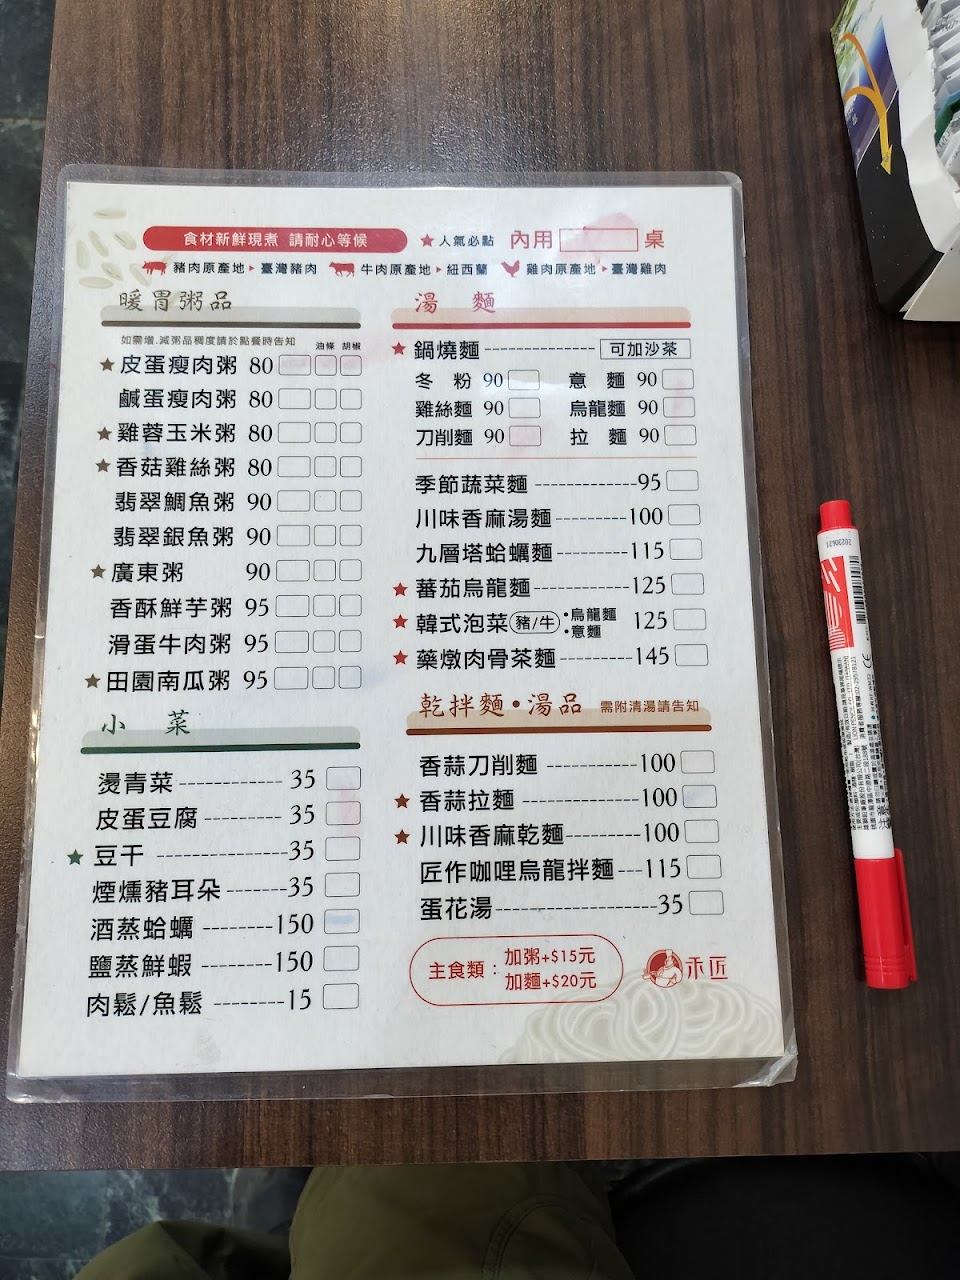 食材新鮮現煮 請耐心等候
★人氣必點 內用 桌
豬肉原產地▸臺灣豬肉 牛肉原產地▸紐西蘭 雞肉原產地▸臺灣雞肉
暖胃粥品
如需增.減粥品稠度請於點餐時告知 油條 胡椒
★皮蛋瘦肉粥 80
鹹蛋瘦肉粥 80
★雞蓉玉米粥 80
★香菇雞絲粥 80
翡翠鯛魚粥 90
翡翠銀魚粥 90
★廣東粥 90
香酥鮮芋粥 95
滑蛋牛肉粥 95
★田園南瓜粥 95
小 菜
燙青菜 ----------- 35
皮蛋豆腐 -------- 35
★豆干 -------------- 35
煙燻豬耳朵 ------- 35
酒蒸蛤蠣 -------- 150
鹽蒸鮮蝦 ------- 150
肉鬆/魚鬆 -------- 15
湯 麵
★鍋燒麵 -------------- 可加沙茶
冬 粉 90 意 麵 90
雞絲麵 90 烏龍麵 90
刀削麵 90 拉 麵 90
季節蔬菜麵 ------------- 95
川味香麻湯麵 --------- 100
九層塔蛤蠣麵 --------- 115
★蕃茄烏龍麵 ------------ 125
★韓式泡菜(豬/牛) •烏龍麵 •意麵 125
★藥燉肉骨茶麵 --------- 145
乾拌麵•湯品 需附清湯請告知
香蒜刀削麵 ----------- 100
★香蒜拉麵 -------------- 100
★川味香麻乾麵 --------- 100
匠作咖哩烏龍拌麵 --- 115
蛋花湯 ------------------- 35
主食類： 加粥+$15元
加麵+$20元
禾匠